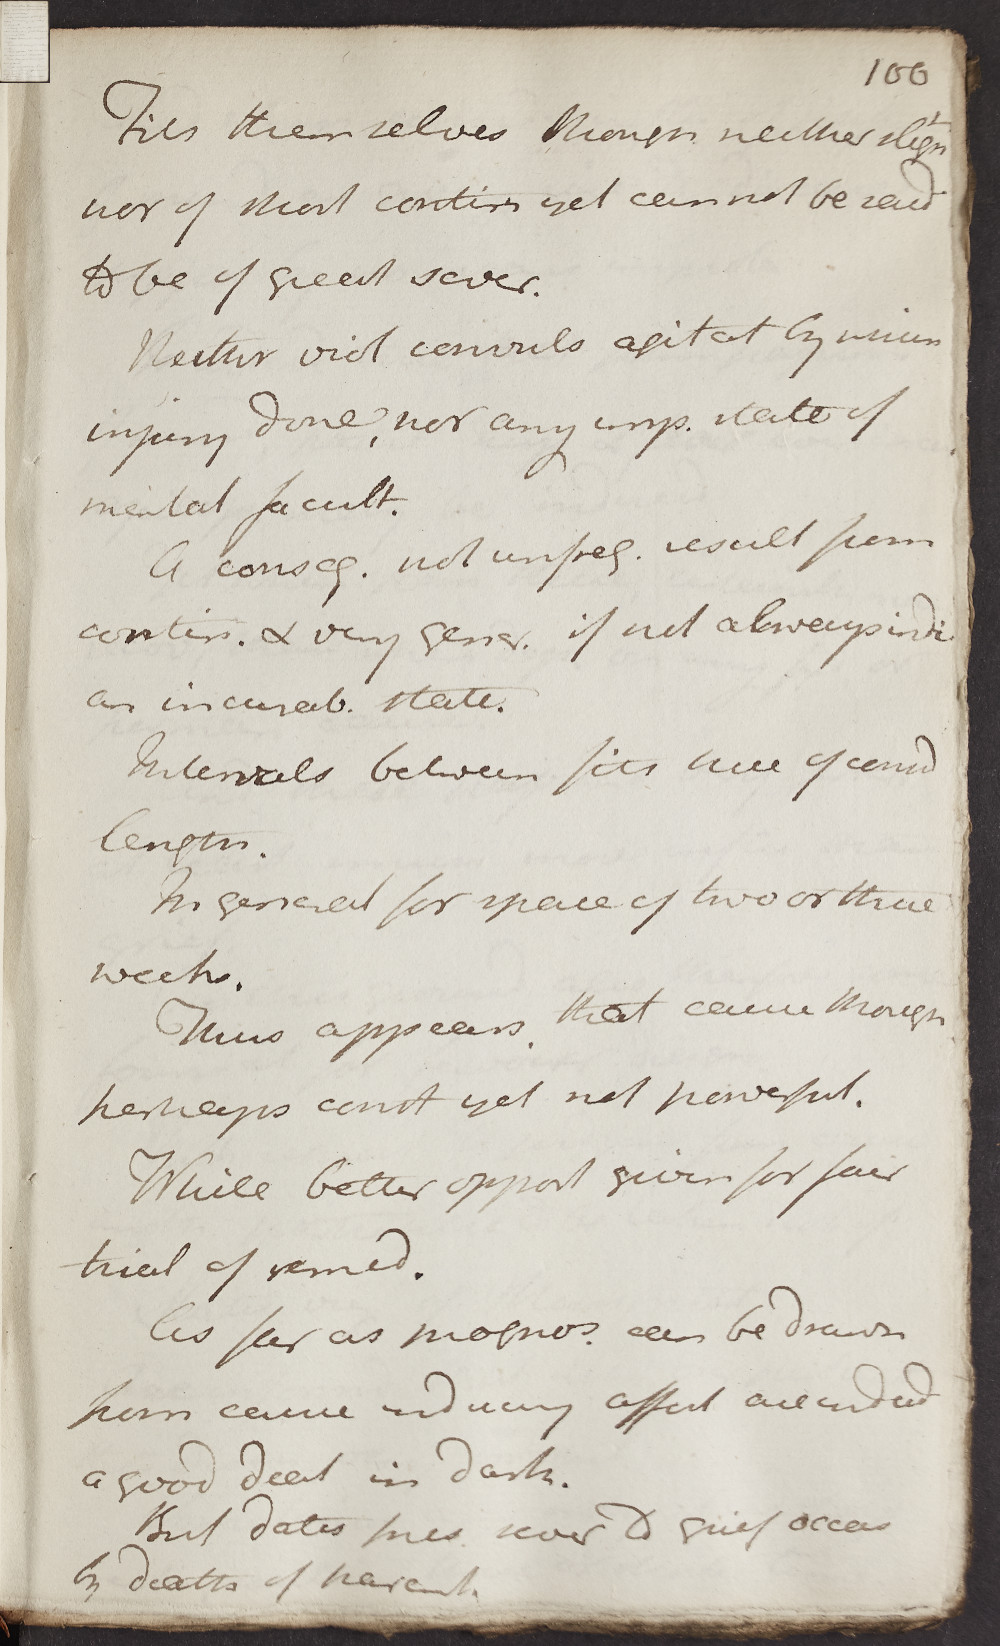 100
Fits themselves though neither sligh
nor of short contin yet cannot be said
to be of great sever.
Neither viol convuls agitat by which
injury done, nor any imp. state of
mental facult.
A conseq. not unfreq. result from
contin. & very gener. if not always indi
an incurab. state.
Intervals between fits here of consid
length.
In general for space of two or three
weeks.
Thus appears that cause though
perhaps const yet not powerful.
While better opport given for fair
trial of remed.
As far as prognos. can be drawn
from cause inducing affect are indeed
a good deal in dark.
But dates pres. sever to grief occas
by death of parent.